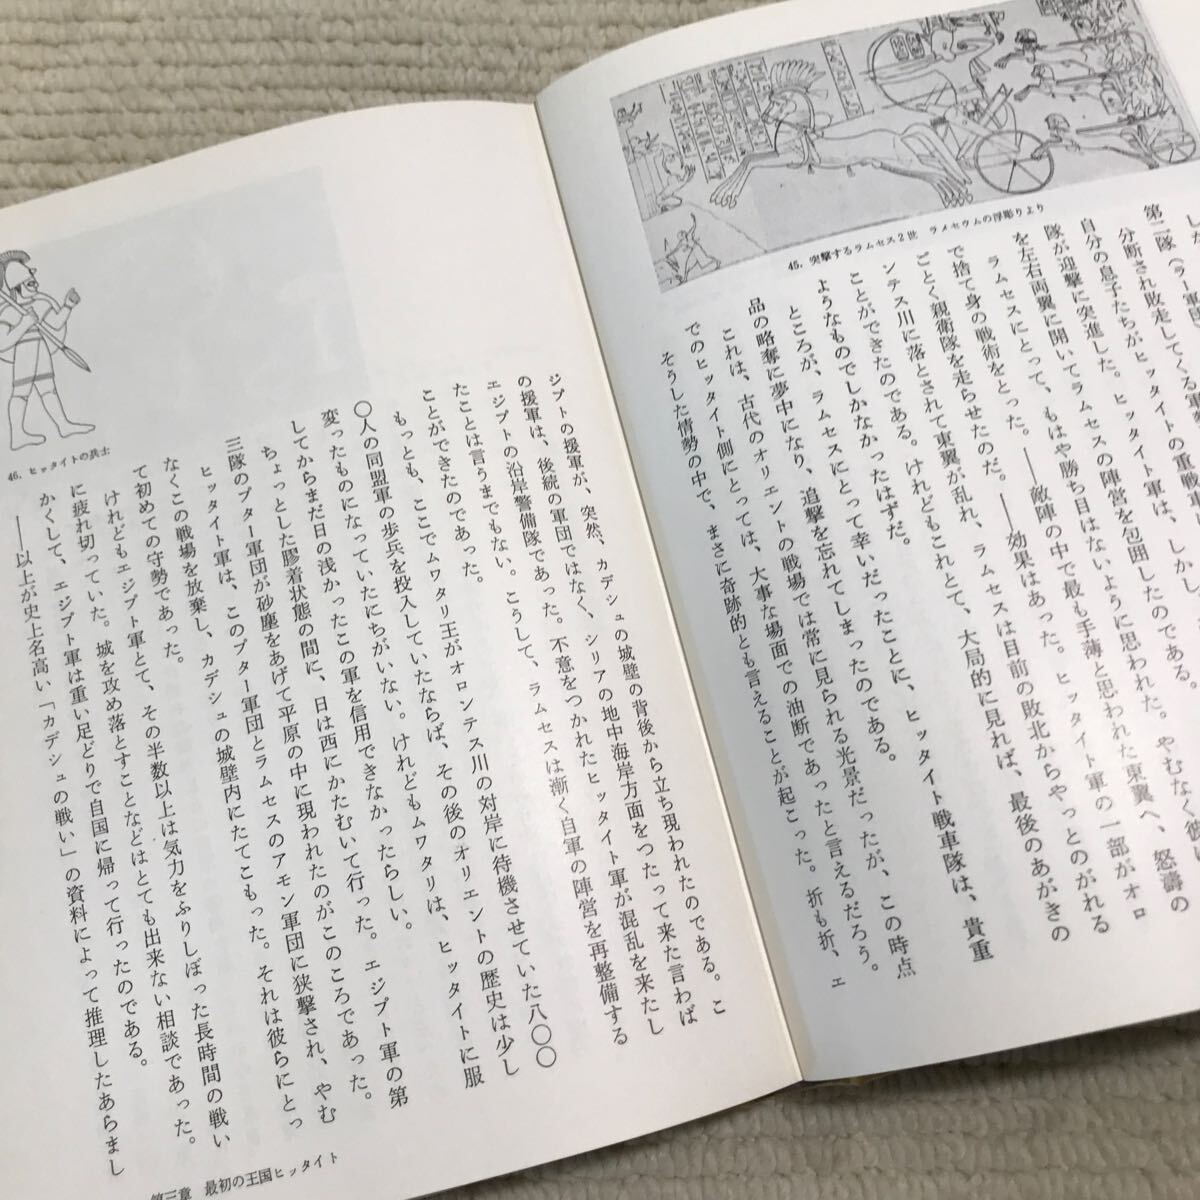 45. 突撃するラムセス2世 ラメセウムの浮彫りより
第二隊（ラー軍団
分断され敗走してくる軍
自分の息子たちがヒッタイトの重戦車
隊が迎撃に突進した。ヒッタイト軍は、しかし
を左右両翼に開いてラムセスの陣営を包囲したのである。
ラムセスにとって、もはや勝ち目はないように思われた。やむなく彼は
で捨て身の戦術をとった。――敵陣の中で最も手薄と思われた東翼へ、怒濤の
ごとく親衛隊を走らせたのだ。――効果はあった。ヒッタイト軍の一部がオロ
ンテス川に落とされて東翼が乱れ、ラムセスは目前の敗北からやっとのがれる
ことができたのである。けれどもこれとて、大局的に見れば、最後のあがきの
ようなものでしかなかったはずだ。
ところが、ラムセスにとって幸いだったことに、ヒッタイト戦車隊は、貴重
品の略奪に夢中になり、追撃を忘れてしまったのである。
これは、古代のオリエントの戦場では常に見られる光景だったが、この時点
でのヒッタイト側にとっては、大事な場面での油断であったと言えるだろう。
そうした情勢の中で、まさに奇跡的とも言えることが起こった。折も折、エ
ジプトの援軍が、突然、カデシュの城壁の背後から立ち現われたのである。こ
の援軍は、後続の軍団ではなく、シリアの地中海岸方面をつたって来た言わば
エジプトの沿岸警備隊であった。不意をつかれたヒッタイト軍が混乱を来たし
たことは言うまでもない。こうして、ラムセスは漸く自軍の陣営を再整備する
ことができたのであった。
もっとも、ここでムワタリ王がオロンテス川の対岸に待機させていた八〇〇
〇人の同盟軍の歩兵を投入していたならば、その後のオリエントの歴史は少し
変ったものになっていたにちがいない。けれどもムワタリは、ヒッタイトに服
してからまだ日の浅かったこの軍を信用できなかったらしい。
ちょっとした膠着状態の間に、日は西にかたむいて行った。エジプト軍の第
三隊のプター軍団が砂塵をあげて平原の中に現われたのがこのころであった。
ヒッタイト軍は、このプター軍団とラムセスのアモン軍団に狭撃され、やむ
なくこの戦場を放棄し、カデシュの城壁内にたてこもった。それは彼らにとっ
て初めての守勢であった。
けれどもエジプト軍とて、その半数以上は気力をふりしぼった長時間の戦い
に疲れ切っていた。城を攻め落とすことなどはとても出来ない相談であった。
かくして、エジプト軍は重い足どりで自国に帰って行ったのである。
――以上が史上名高い「カデシュの戦い」の資料によって推理したあらまし
46. ヒッタイトの兵士
第三章 最初の王国ヒッタイト